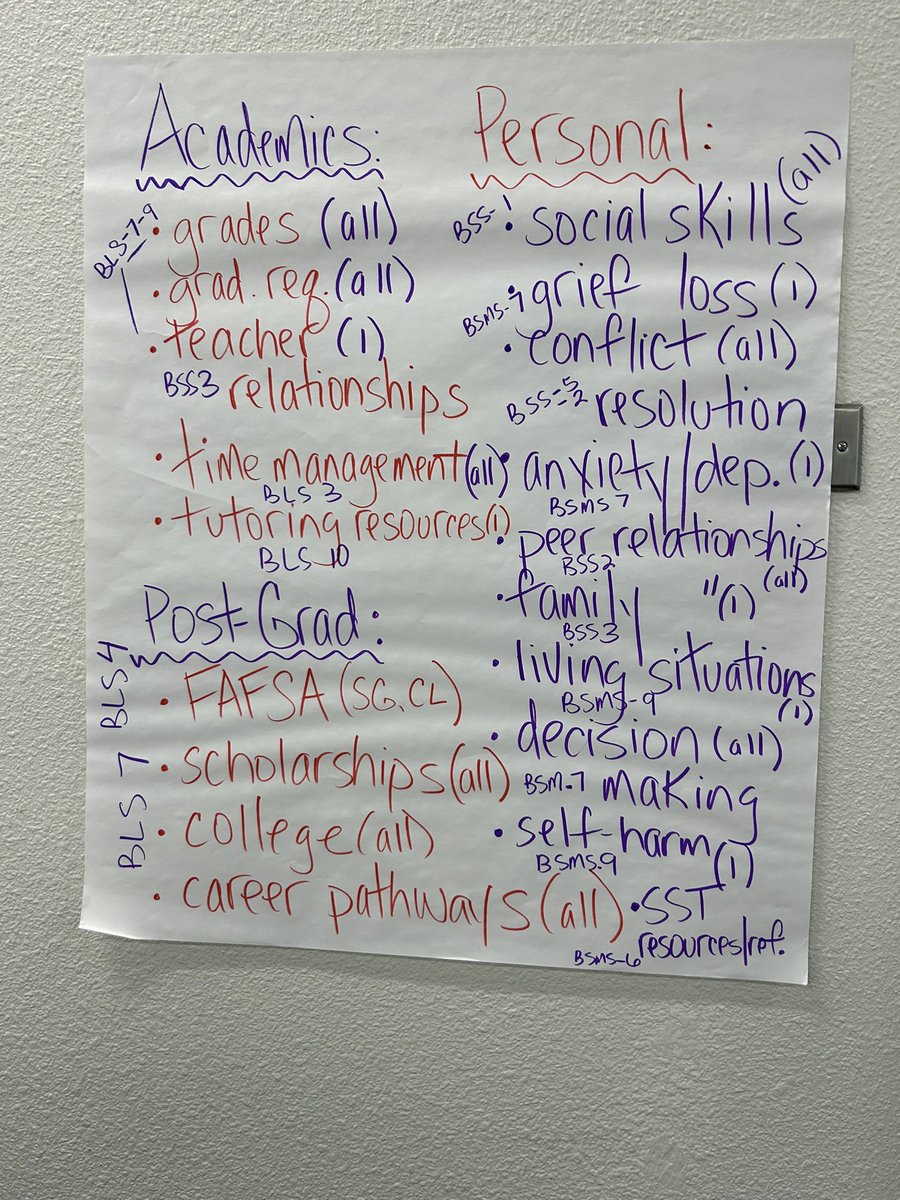 Academics:
BLS-7-9
• grades (all)
• grad. req. (all)
• teacher (1)
BSS3 relationships
• time management (all)
BLS 3
• tutoring resources (1)
BLS 10
Post-Grad:
BLS 4
BLS 7
• FAFSA (SG, CL)
• scholarships (all)
• college (all)
• career pathways (all)
Personal:
(all)
BSS-1 • social skills
BSMS-7 • grief loss (1)
• conflict (all)
BSS-5-2 resolution
• anxiety/dep. (1)
BSMS 7
• peer relationships
BSS2 (all)
• family " (1)
BSS3
• living situations
BSMS-9 (1)
• decision (all)
BSM-7 making
• self-harm (1)
BSMS-9
• SST
BSMS-6 resources/ref.